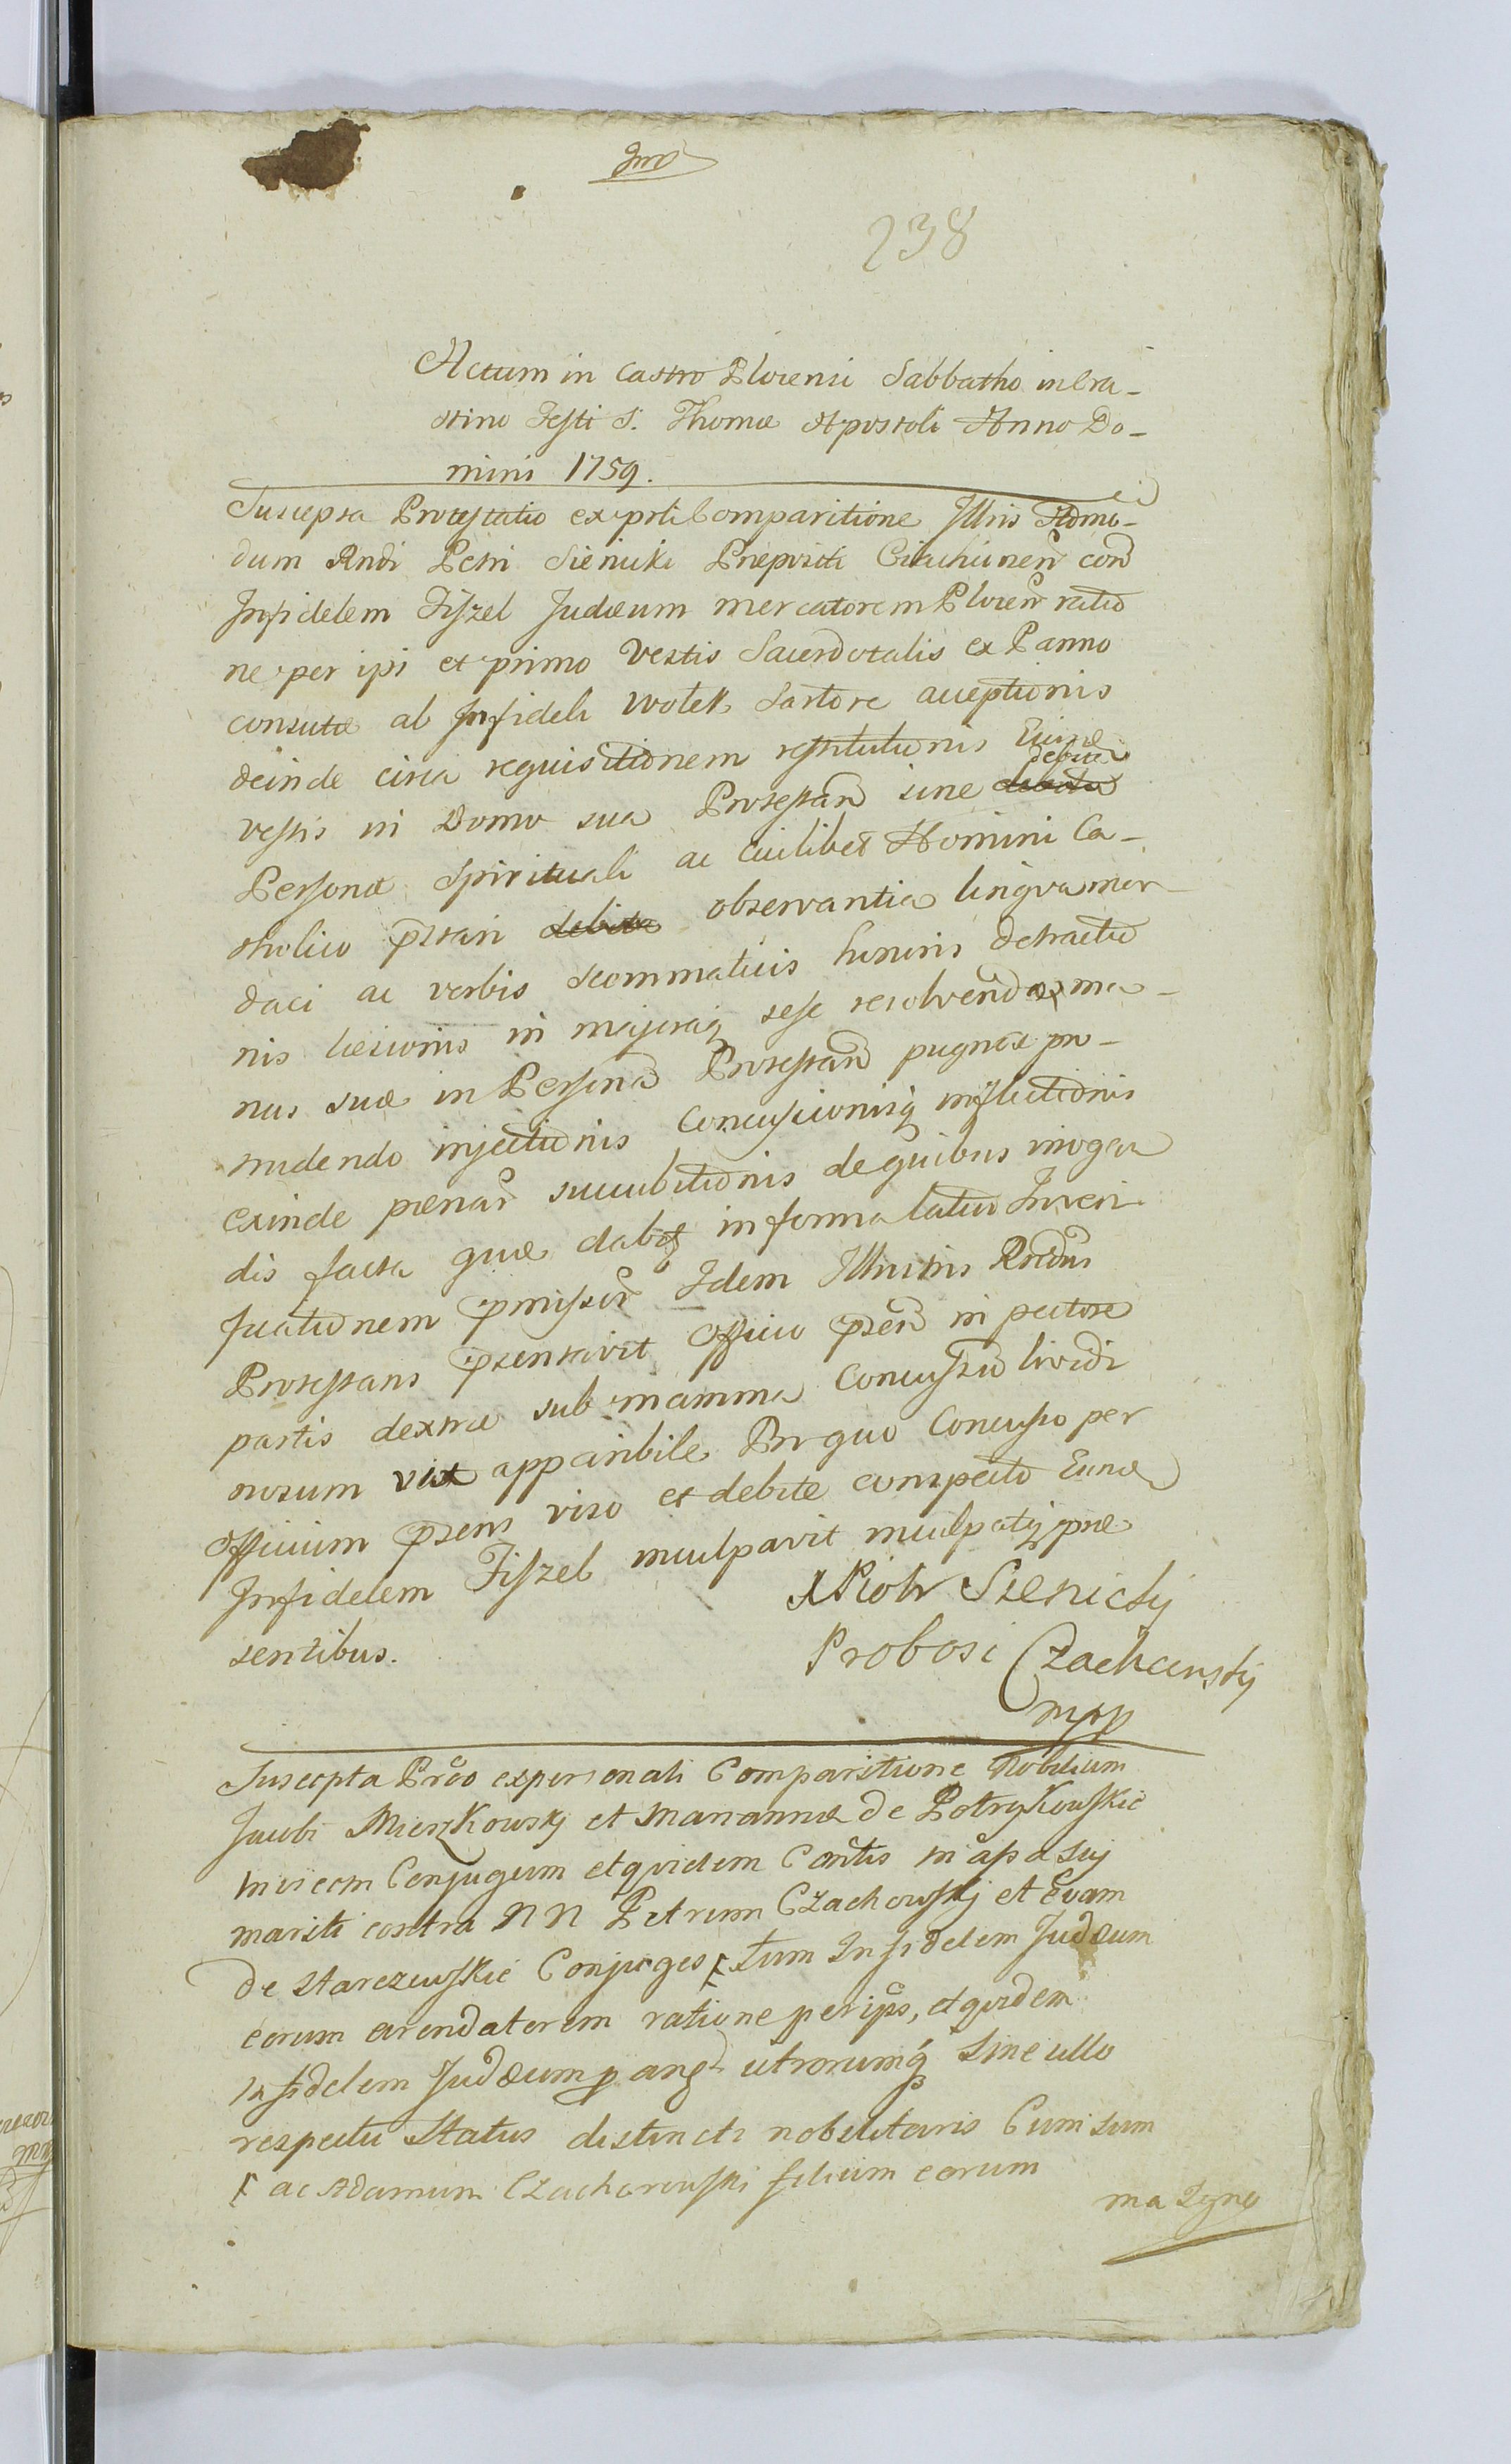 238
Actum in Castro Plocensi Sabbatho in Cra-
stino Festi S. Thomæ Apostoli Anno Do-
mini 1759.
Suscepta Protestatio ex psli Comparitione Illris Admo-
dum Rndi Petri Sienicki Præpositi Ciachcinen con
Infidelem Fiszel Judæum mercatorem Plocen ratio
ne per ipi et primo Vestis Sacerdotalis ex Panno
consutæ ab Infideli Wolek Sartore acceptionis
deinde circa requisitionem restitutionis Ejusd
vestis in Domo sua Protestan sine debita
Personæ Spirituali ac Cuilibet Homini Ca-
tholico pstari debita observantia lingva mor
daci ac verbis scommaticis honoris detractio
nis læsionis in majoraq sese resolvendo ma-
nus suæ in Personā Protestan pugnæ pro-
tudendo injectionis Concussionisq inflictionis
exinde pœnar succubitionis de quibus in oga
dis facta quæ dabit in forma latio Inven
ficationem pmissor Idem Illris Rndus
Protestans psentavit Officio psen in pectore
partis dextræ sub mamma Concussū lividi
nosum vix apparibile Pr quo Concussio per
Officium psens viso et debite conspecto Eund
Infidelem Fiszel inculpavit inculpatq præ
sentibus.
X Piotr Sienicky
Probosc Czachcinsky
mpp
Suscepta Prōo ex personali Comparitione Nobilium
Jacobi Mieszkowsky et Mariannæ de Potrykowskie
invicem Conjugum et qvidem Contis in aps a suj
mariti contra N N Petrum Czachowskj et Evam
de Starczewskie Conjuges ⁁ tum Infidelem Judæum
eorum arendatorem ratione per ips, et qvidem
Infidelem Judæum p ang utrorumq sine ullo
respectu Status distincti nobilitaris Cum sum
⁁ ac Adamum Czachorowski filium eorum
ma Igne